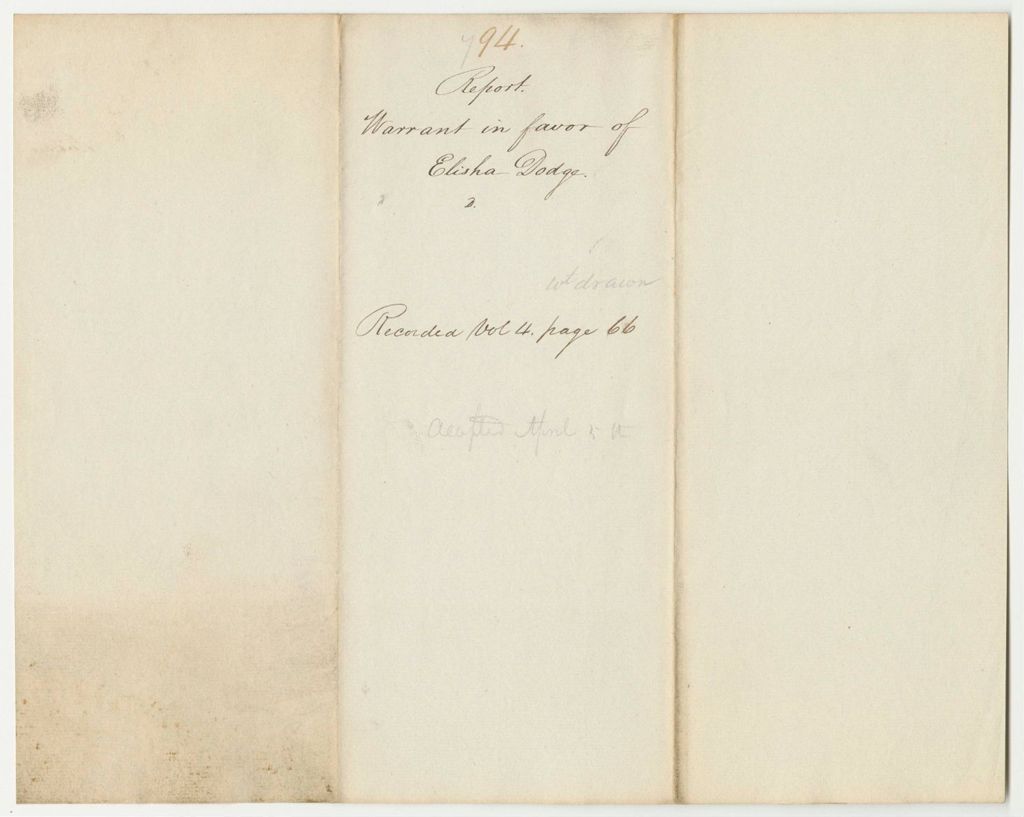 94.
Report.
Warrant in favor of
Elisha Dodge.
wt drawn
Recorded Vol 4. page 66
April 5